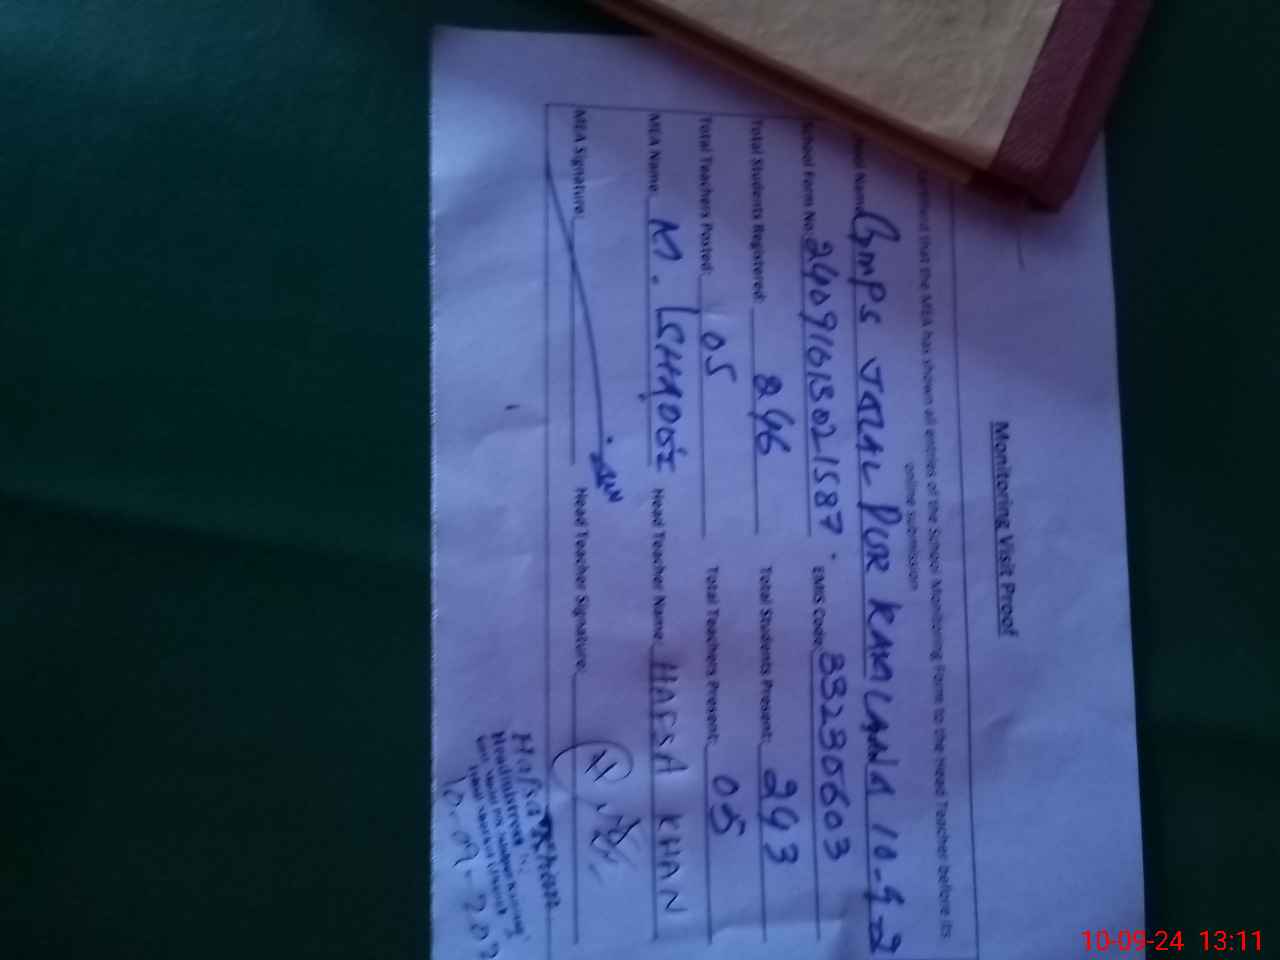 Monitoring Visit Proof
that the MEA has shown all entries of the School Monitoring Form to the Head Teacher before its
online submission
Name GMPS JALAL PUR KAMLANA 10-9-2
School Form No: 24091613021587. EMIS Code: 33230603
Total Students Registered: 246 Total Students Present: 243
Total Teachers Posted: 05 Total Teachers Present: 05
MEA Name M. ISHAQ Head Teacher Name HAFSA KHAN
MEA Signature: Head Teacher Signature:
Hafsa Khan
Headmistress
10-09-202
10-09-24 13:11